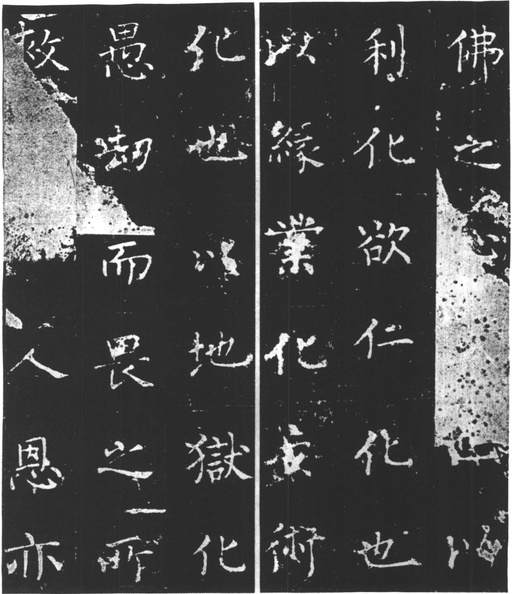 佛之
利化欲仁化也
以緣業化妄術
化也以地獄化
愚劫而畏之所
故人恩亦